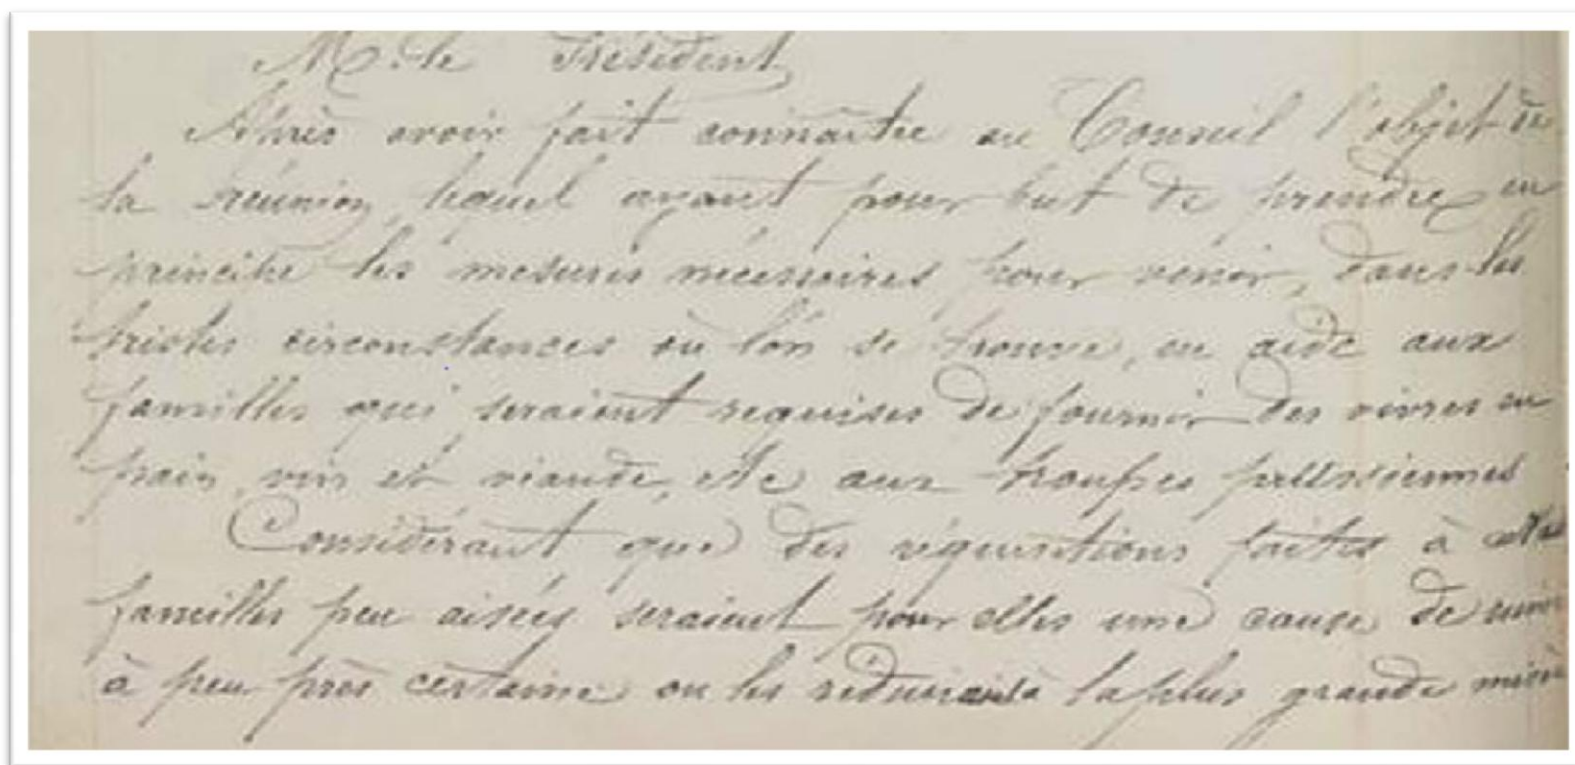 M. le Président
Après avoir fait connaître au Conseil l'objet de
la réunion, lequel ayant pour but de prendre en
principe les mesures nécessaires pour venir, dans les
tristes circonstances où l'on se trouve, en aide aux
familles qui seraient requises de fournir des vivres en
pain, vin et viande, etc aux troupes prussiennes
Considérant que des réquisitions faites à
familles peu aisées seraient pour elles une cause de ruine
à peu près certaine ou les réduirait à la plus grande misère